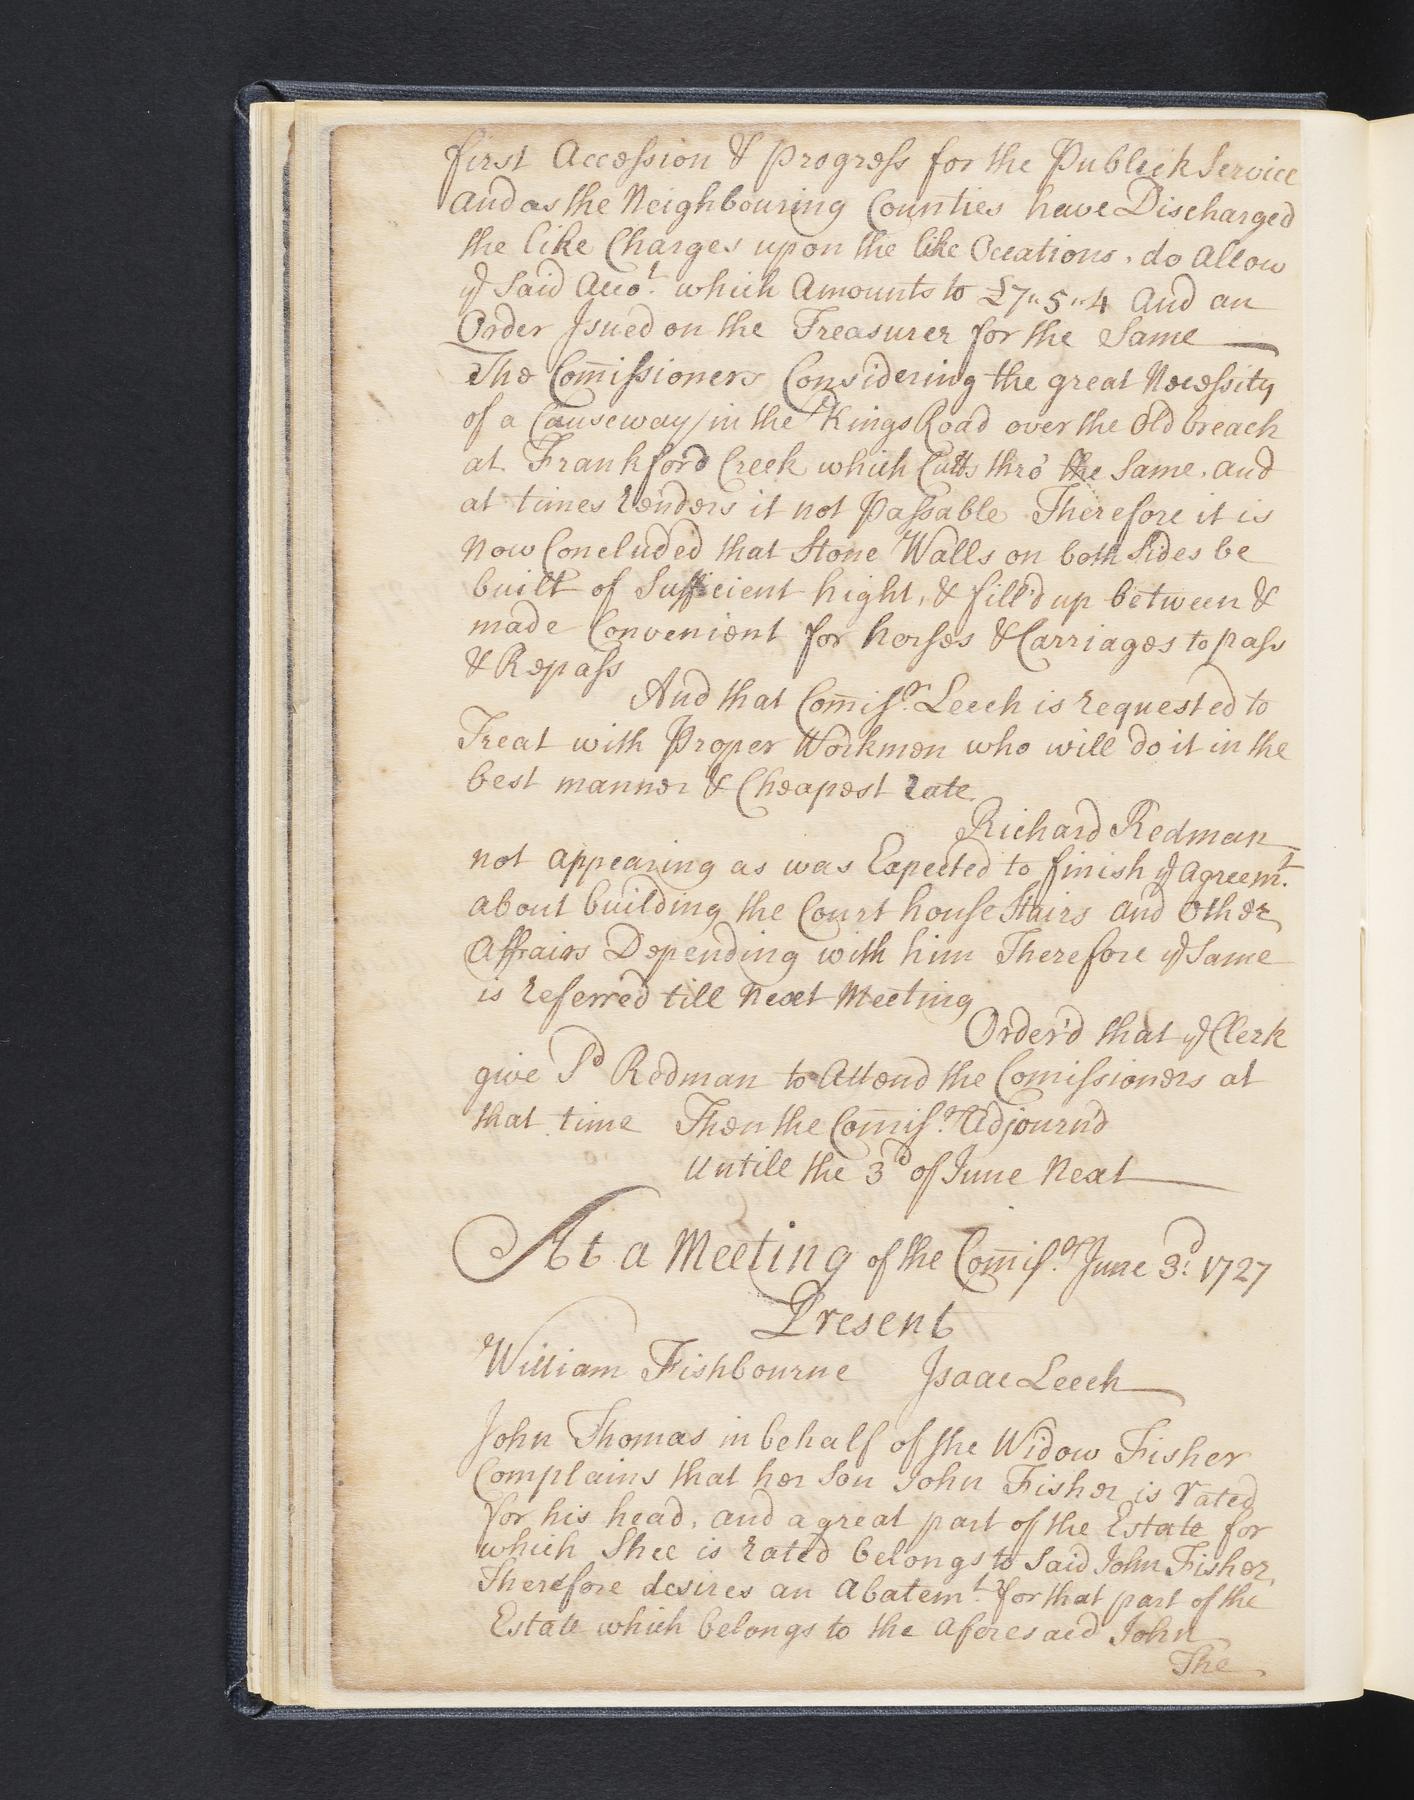 first Accession & Progress for the Publick Service
and as the Neighbouring Counties have Discharged
the like Charges upon the like Occations, do Allow
yͤ Said Acco.ᵗ which Amounts to £7"5"4 And an
Order Jsued on the Treasurer for the Same
The Com̄issioners Considering the great Necessity
of a Causeway in the Kings Road over the Old breach
at Frankford Creek which Cutts thrō the Same, and
at times renders it not Passable Therefore it is
Now Concluded that Stone Walls on both Sides be
built of Sufficient hight, & fill'd up between &
made Convenient for horses & Carriages to pass
& Repass
And that Com̄is.ʳ Leech is requested to
Treat with Proper Workmen who will do it in the
best manner & Cheapest rate
Richard Redman
not appearing as was Expected to finish yͤ agreem.ᵗ
about building the Court house Stairs and Other
Affairs Depending with him Therefore yͤ Same
is referred till Next Meeting
Order'd that yͤ Clerk
give Sᵈ Redman to Attend the Comissioners at
that time Then the Com̄is.ʳˢ Adjourn'd
Untill the 3ᵈ of June Next
At a Meeting of the Com̄is.ʳˢ June 3.ᵈ 1727
Present
William Fishbourne Jsaac Leech
John Thomas in behalf of the Widow Fisher
Complains that her Son John Fisher is rated
for his head, and a great part of the Estate for
which Shee is rated belongs to Said John Fisher,
Therefore desires an Abatem.ᵗ for that part of the
Estate which belongs to the aforesaid John
The